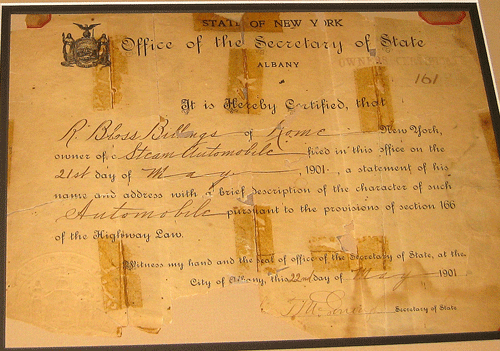 STATE OF NEW YORK
Office of the Secretary of State
ALBANY
161
It is Hereby Certified, that
R Bloss Billings of Rome New York,
owner of Steam Automobile filed in this office on the
21st day of May, 1901, a statement of his
name and address with a brief description of the character of such
Automobile pursuant to the provisions of section 166
of the Highway Law.
Witness my hand and the seal of office of the Secretary of State, at the
City of Albany, this 22nd day of May 1901
Secretary of State